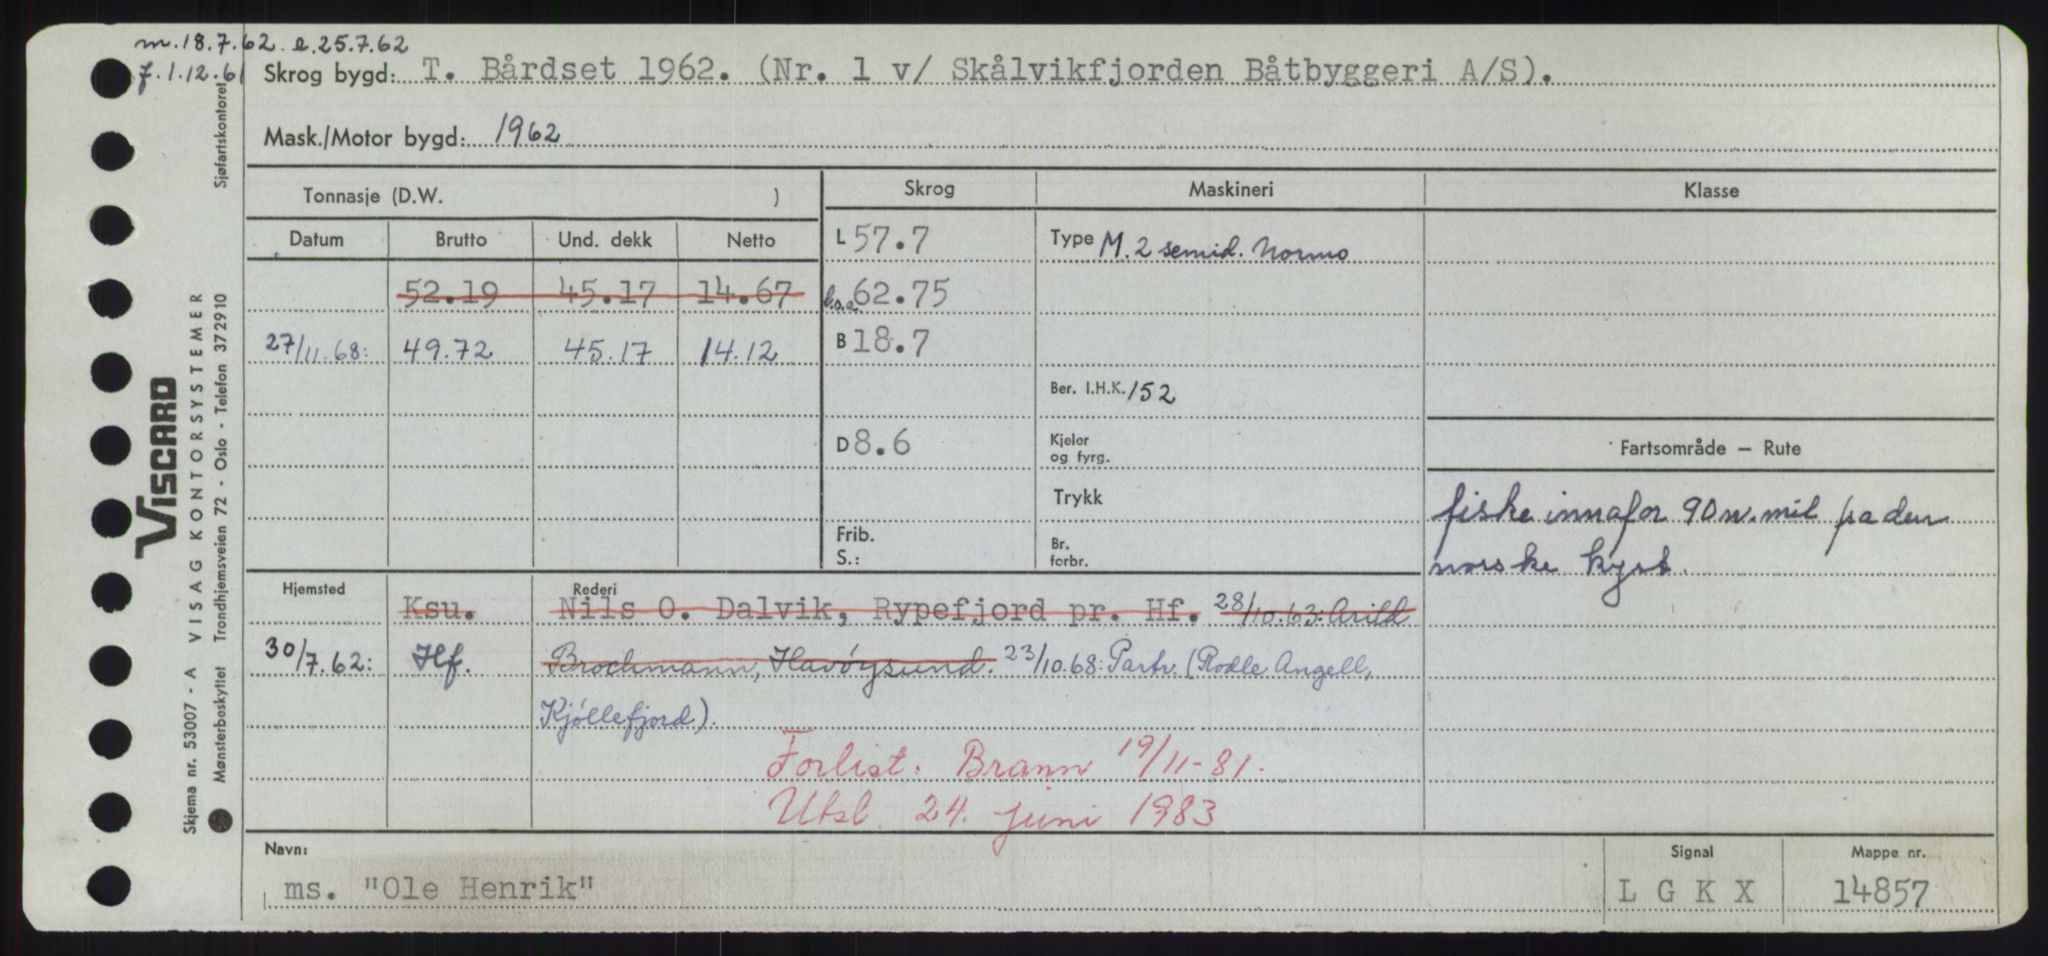 m. 18.7.62. e. 25.7.62
f. 1.12.61
Skrog bygd: T. Bårdset 1962. (Nr. 1 v/ Skålvikfjorden Båtbyggeri A/S).
Mask./Motor bygd: 1962
Tonnasje (D.W. )
Skrog Maskineri Klasse
Datum Brutto Und. dekk Netto
L 57.7 Type M. 2 semid. Normo
52.19 45.17 14.67 l.o.a. 62.75
27/11.68: 49.72 45.17 14.12 B 18.7
Ber. I.H.K. 152
D 8.6 Kjeler og fyrg.
Fartsområde — Rute
Trykk
fiske innafor 90 n. mil pa den
Frib. S.: Br. forbr.
norske kyst.
Hjemsted Rederi
Ksu. Nils O. Dalvik, Rypefjord pr. Hf. 28/10.63: Arild
30/7.62: Hf. Brochmann, Havöysund. 23/10.68: Partr. (Rodle Angell,
Kjöllefjord).
Forlist. Brann 19/11-81.
Utsl. 24. juni 1983
Navn: Signal Mappe nr.
ms. "Ole Henrik" L G K X 14857
VISCARD
Skjema nr. 53007 - A VISAG KONTORSYSTEMER
Mønsterbeskyttet Trondhjemsveien 72 - Oslo - Telefon 372910
Sjøfartskontoret